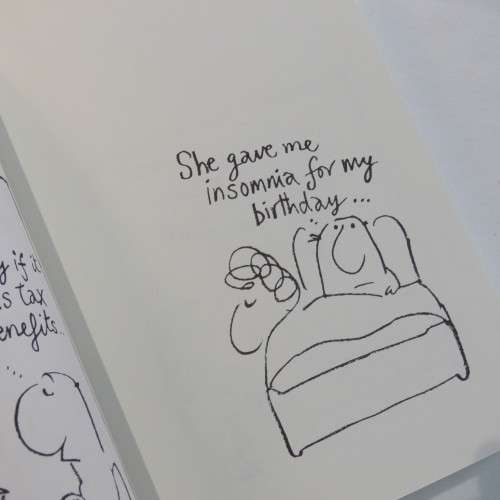 She gave me
insomnia for my
birthday...
if it
s tax
enefits..
...